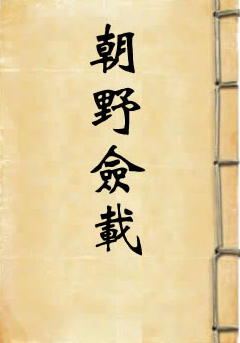 朝野僉載